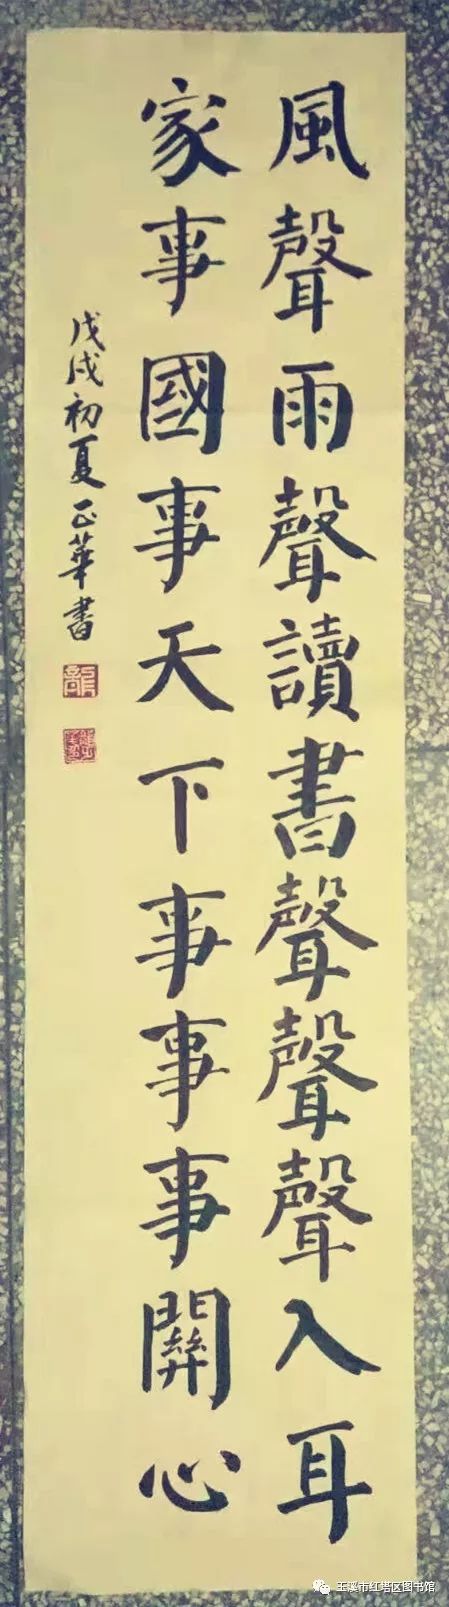 風聲雨聲讀書聲聲聲入耳
家事國事天下事事事關心
戊戌初夏正華書
玉溪市红塔区图书馆